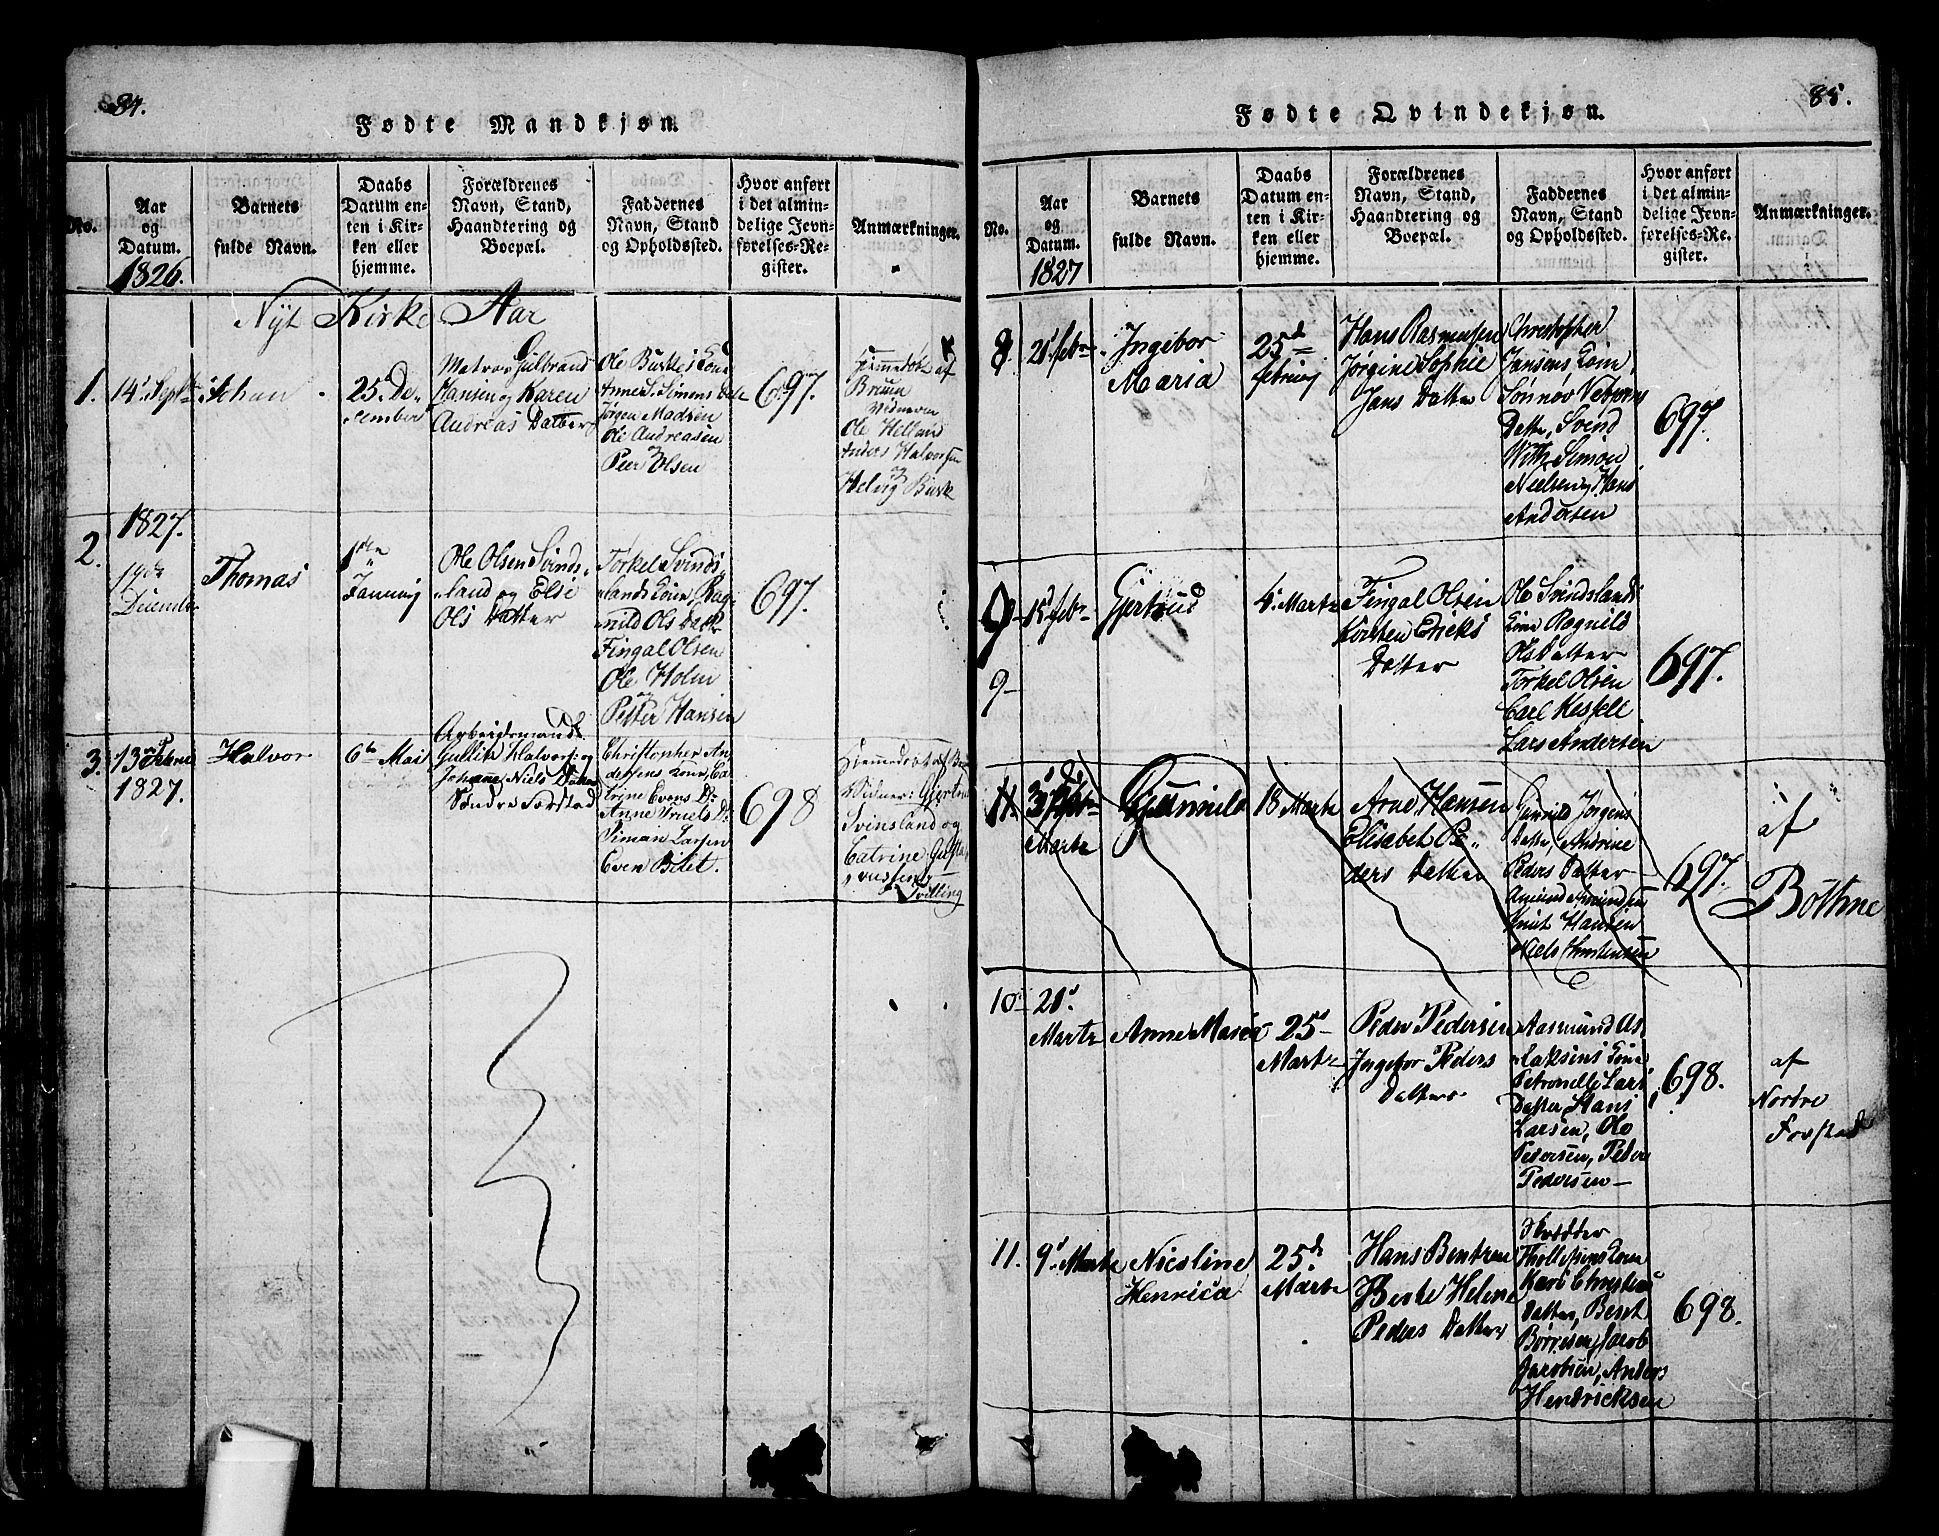 84.
Fødte Mandkjøn.
No.
Aar
og
Datum.
1826.
Barnets
fulde Navn.
Daabs
Datum en-
ten i Kir-
ken eller
hjemme.
Forældrenes
Navn, Stand,
Haandtering og
Boepæl.
Faddernes
Navn, Stand
og Opholdssted.
Hvor anført
i det almin-
delige Jevn-
førelses-Re-
gister.
Anmærkninger.
Nyt Kirke Aar
1.
14. Septr
Johan
25. De-
cember
Matros Gulbrand
Hansen og Karen
Andreas Datter
Ole Buskes Kone
Anne S. Simens Datr
Jørgen Madsen
Ole Andreasen
og
Peer Olsen
697.
Hjemmedøbt af
Bruun
Vidner
Ole Helland
Anders Halvorsen
og
Helvig Busk
2.
1827.
19de
Decembr
Thomas
1ste
Januarij
Ole Olsen Svinds-
land og Elsi
Ols Datter
Torkel Svinds-
lands Kone Rag-
nild Ols Datr
Fingal Olsen
Ole Holm
og
Petter Hansen
697.
3.
13de Febru
1827.
Halvor
6te Mai
Arbeidsmand
Gullik Halvors. og
Johanne Niels Datter
Søndre Forstad
Christopher An-
dersens Kone, Ca-
trine Evens Dr
Anne Truels Dr
Siman Larsen
Even Bilet.
698
Hjemmedøbt af
Vidner: Gjertru
Svinsland og
Catrine Gusta-
vussen
Tvilling
85.
Fødte Qvindekjøn.
No.
Aar
og
Datum.
1827
Barnets
fulde Navn.
Daabs
Datum en-
ten i Kir-
ken eller
hjemme.
Forældrenes
Navn, Stand,
Haandtering og
Boepæl.
Faddernes
Navn, Stand
og Opholdssted.
Hvor anført
i det almin-
delige Jevn-
førelses-Re-
gister.
Anmærkninger.
8.
21 febr.
Ingebor
Maria
25de
februarij
Hans Rasmussen
Jørgine Sophie
Jans Datter
Christopher
Jansens Kone,
Sønnøv
Datter, Svend
With, Simon
Nielsen, Hans
Andersen
697.
9
9-
15 febr
Gjertrud
4. Martz
Fingal Olsen
Kirsten Ericks
Datter
Ole Svindslands
Kone Ragnild
Ols Datter
Torkel Olsen
Carl Kessell
Lars Andersen
697.
11.
3
Martz
Gunnild
18 Martz
Arne Hansen
Elisabet Pe-
ders Datter
Gunnild Jørgens
Datter, Andrine
Peders Datter
Amund Amundsen
Knut Hansen
Niels Christensen
697.
af
Bothne
10
21.
Martz
Anne Maria
25
Martz
Peder Pedersen
Ingebor Peders
Datter
Aasmund As-
laksens Kone
Petronelle Lars
Datter, Hans
Larsen, Ole
Pedersen, Peder
Pedersen
698.
af
Nordre
Forstad
11.
9. Martz
Nicoline
Henrica
25de
Martz
Hans Bentzen
Berte Helene
Peders Datter
Skrædder
Thollefsens Kone
Karen Christens
Datter, Beret
Børresen, Jacob
Jacobsen, Anders
Hendricksen
698.